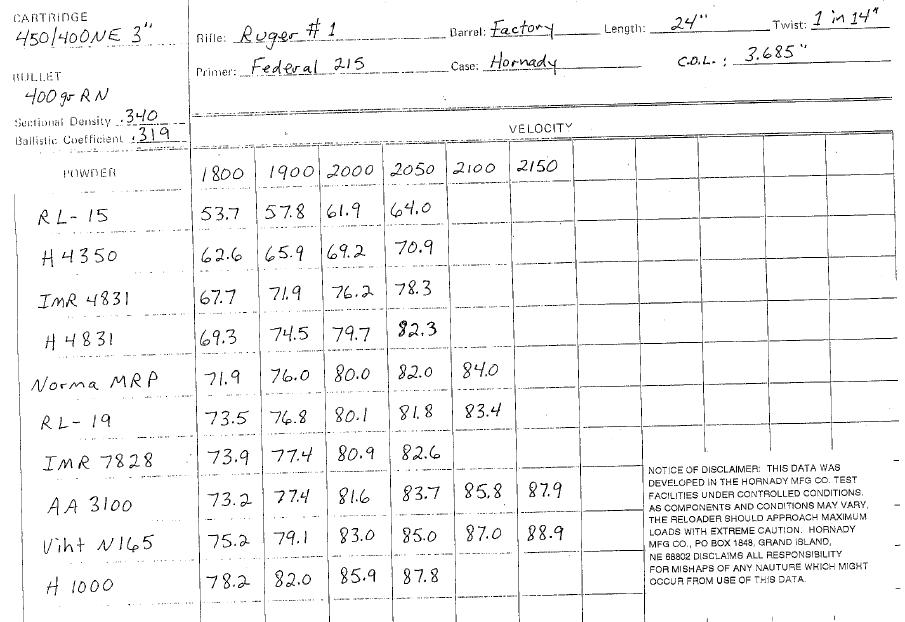 CARTRIDGE
450/400 NE 3"
Rifle: Ruger # 1 Barrel: Factory Length: 24" Twist: 1 in 14"
Primer: Federal 215 Case: Hornady C.O.L.: 3.685"
BULLET
400 gr RN
Sectional Density .340
Ballistic Coefficient .319
VELOCITY
POWDER 1800 1900 2000 2050 2100 2150
RL-15 53.7 57.8 61.9 64.0
H 4350 62.6 65.9 69.2 70.9
IMR 4831 67.7 71.9 76.2 78.3
H 4831 69.3 74.5 79.7 82.3
Norma MRP 71.9 76.0 80.0 82.0 84.0
RL-19 73.5 76.8 80.1 81.8 83.4
IMR 7828 73.9 77.4 80.9 82.6
AA 3100 73.2 77.4 81.6 83.7 85.8 87.9
Viht N165 75.2 79.1 83.0 85.0 87.0 88.9
H 1000 78.2 82.0 85.9 87.8
NOTICE OF DISCLAIMER: THIS DATA WAS
DEVELOPED IN THE HORNADY MFG CO. TEST
FACILITIES UNDER CONTROLLED CONDITIONS.
AS COMPONENTS AND CONDITIONS MAY VARY,
THE RELOADER SHOULD APPROACH MAXIMUM
LOADS WITH EXTREME CAUTION. HORNADY
MFG CO., PO BOX 1848, GRAND ISLAND,
NE 68802 DISCLAIMS ALL RESPONSIBILITY
FOR MISHAPS OF ANY NAUTURE WHICH MIGHT
OCCUR FROM USE OF THIS DATA.